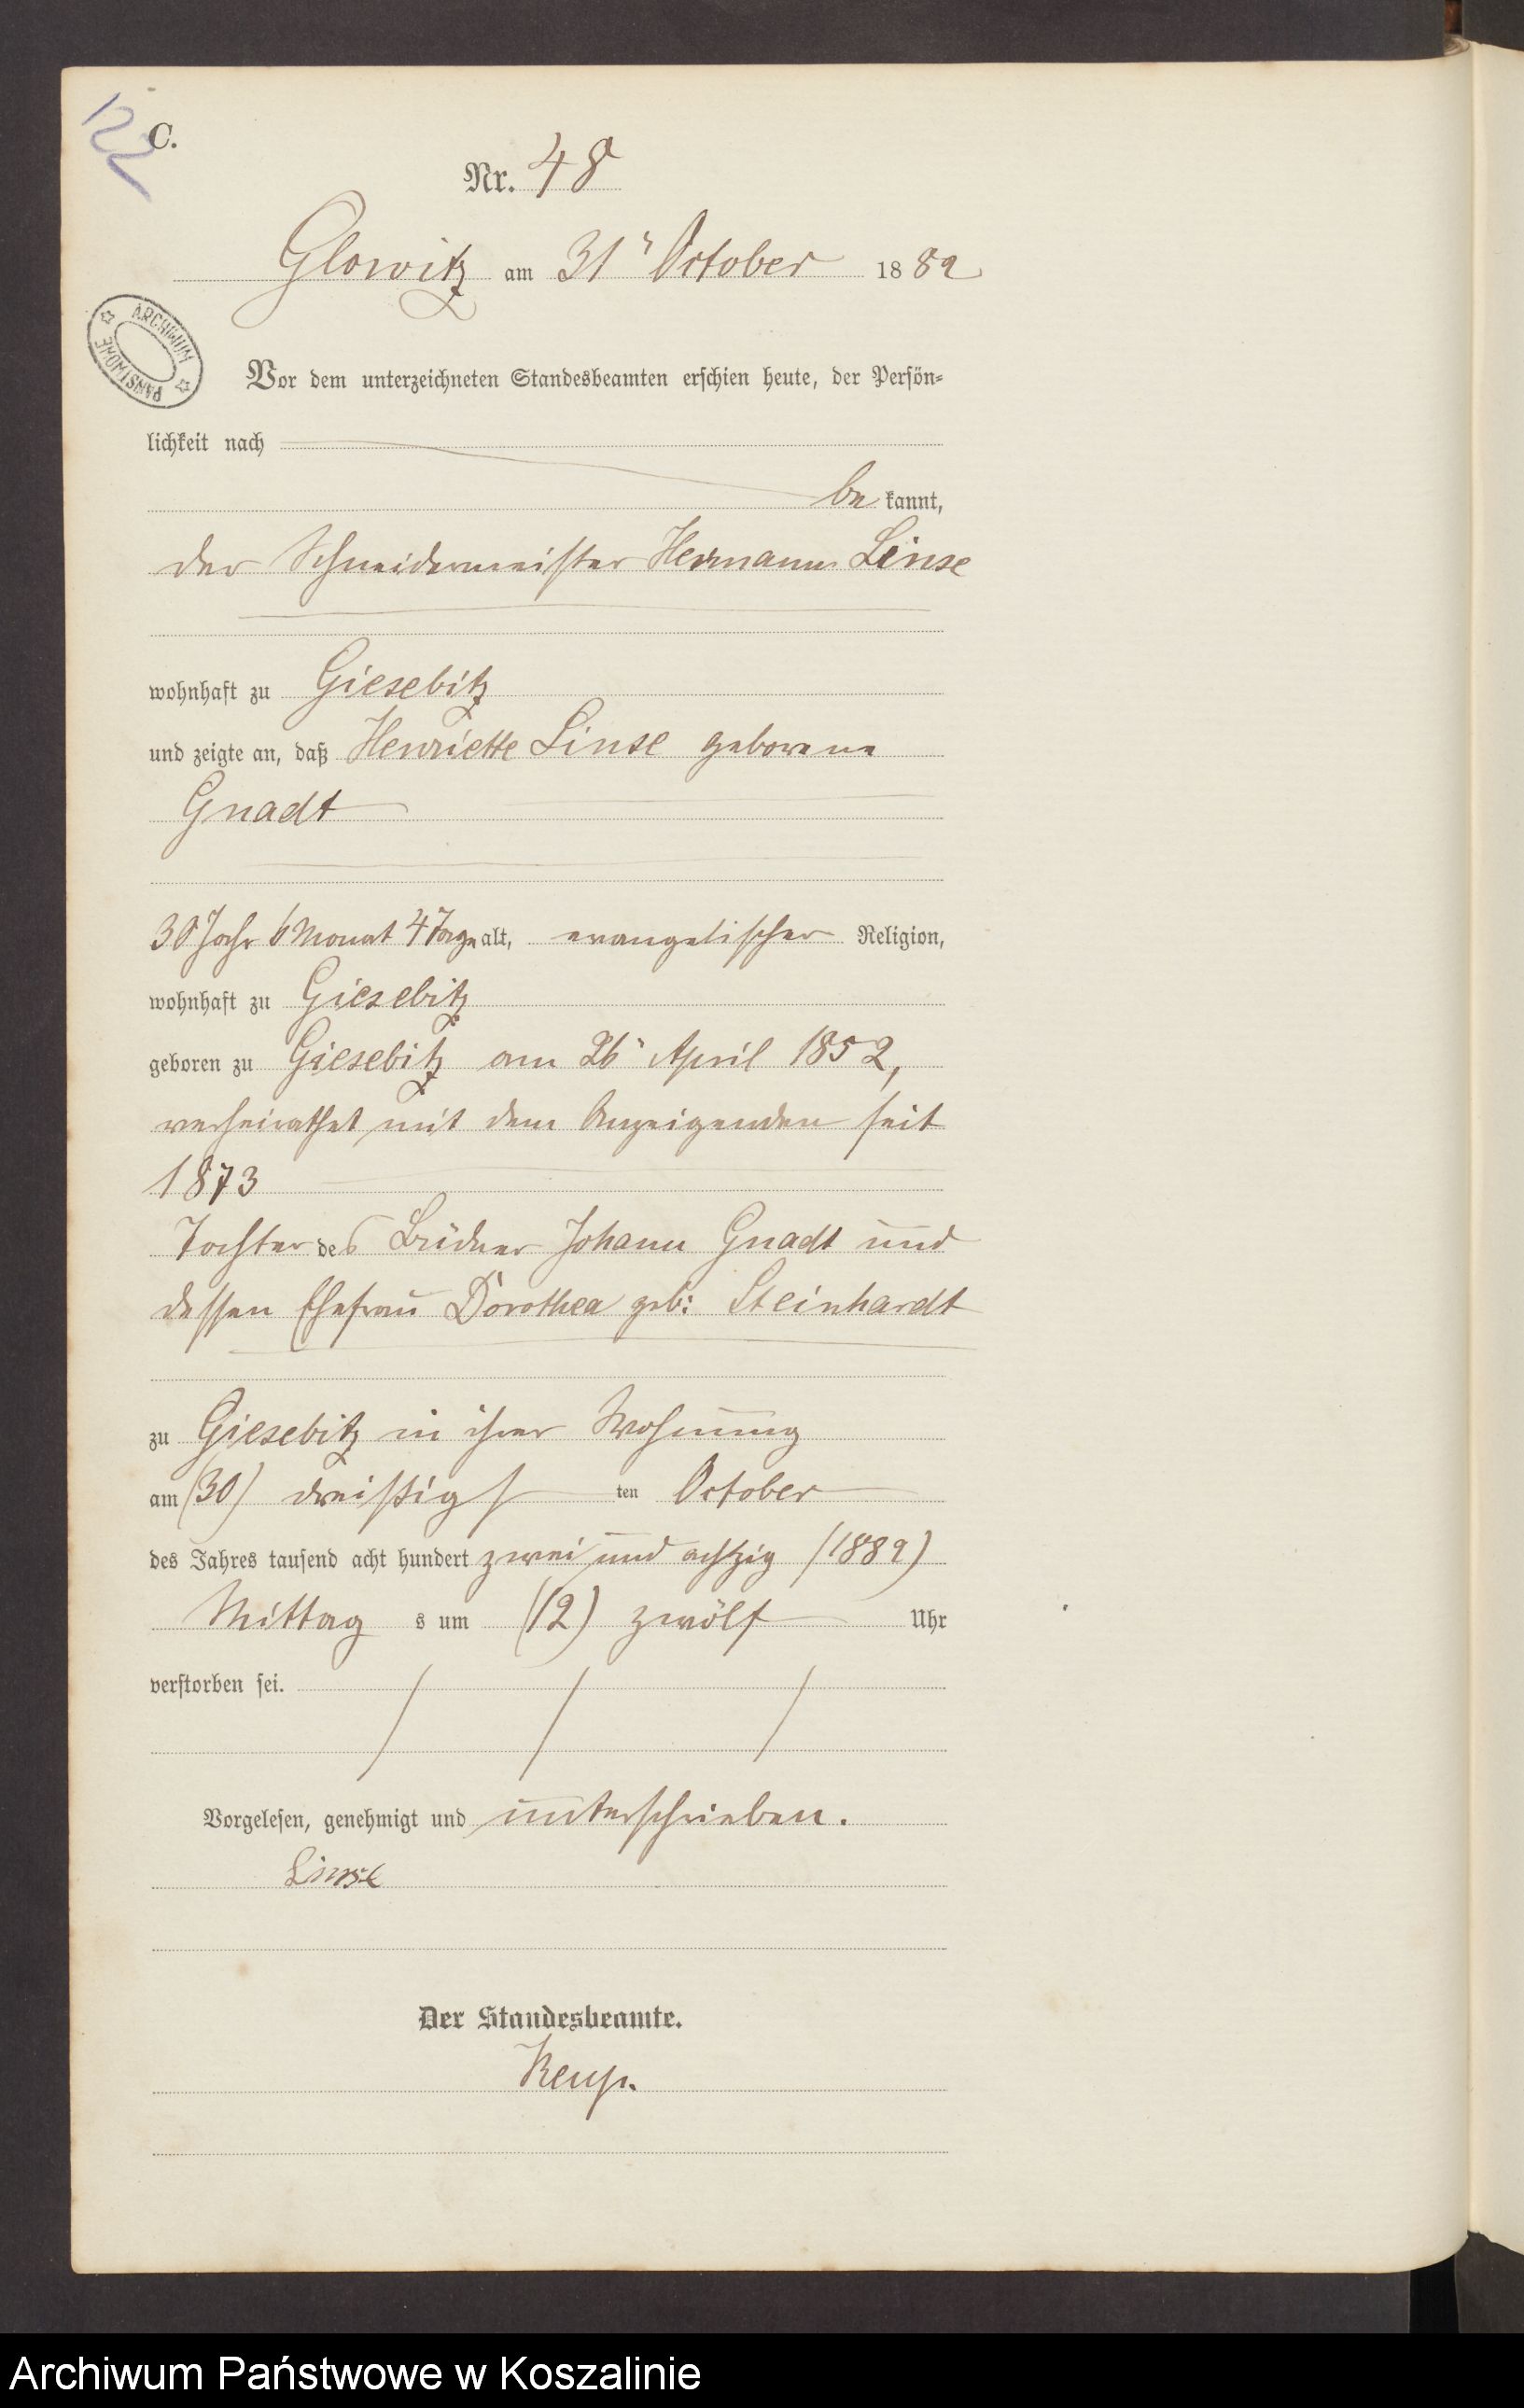 122
C.
Nr. 48
Glowitz am 31ᵗ October 1882
ARCHIWUM PAŃSTWOWE
Vor dem unterzeichneten Standesbeamten erschien heute, der Persön-
lichkeit nach
be kannt,
der Schneidermeister Hermann Linse
wohnhaft zu Giesebitz
und zeigte an, daß Henriette Linse geborene
Gnadt
30 Jahr 6 Monat 4 Tage alt, evangelischer Religion,
wohnhaft zu Giesebitz
geboren zu Giesebitz am 26ᵗ April 1852,
verheirathet mit dem Anzeigenden seit
1873
Tochter des Büdner Johann Gnadt und
dessen Ehefrau Dorothea geb: Steinhardt
zu Giesebitz in ihrer Wohnung
am (30) dreißigs ten October
des Jahres tausend acht hundert zwei und achtzig (1882)
Mittag s um (12) zwölf Uhr
verstorben sei.
Vorgelesen, genehmigt und unterschrieben.
Linse
Der Standesbeamte.
Archiwum Państwowe w Koszalinie